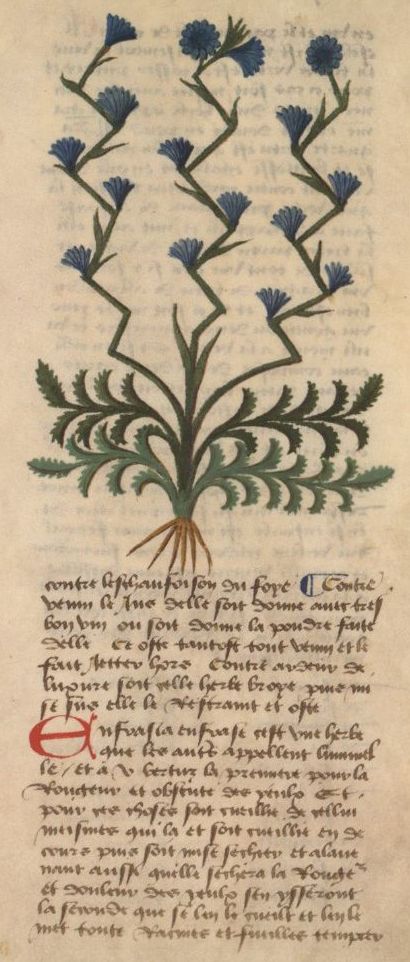 contre leschaufoison du foye ¶ Contre
venin le Jus delle soit donne auec tres
bon vin ou soit donne la pouldre faite
delle Ce oste tantost tout venin et le
fait Jetter hors Contre ardeur de
luxure soit celle herbe broye puis mi
se sus elle le Restraint et oste
Enfrasia enfrase cest vne herbe
que les autres appellent
le / et a v vertuz la premiere pour la
Rougeur et obscurte des yeulx Et
pour ces choses soit cueillie de cellui
meismes qui la et soit cueillie en de
cours puis soit mise sechier et a laue
nant aussi quelle sechera la Rouge
et douleur des yeulx sen ysseront
la seconde que se len le cueilt et len le
met toute Racines et fueilles temprer